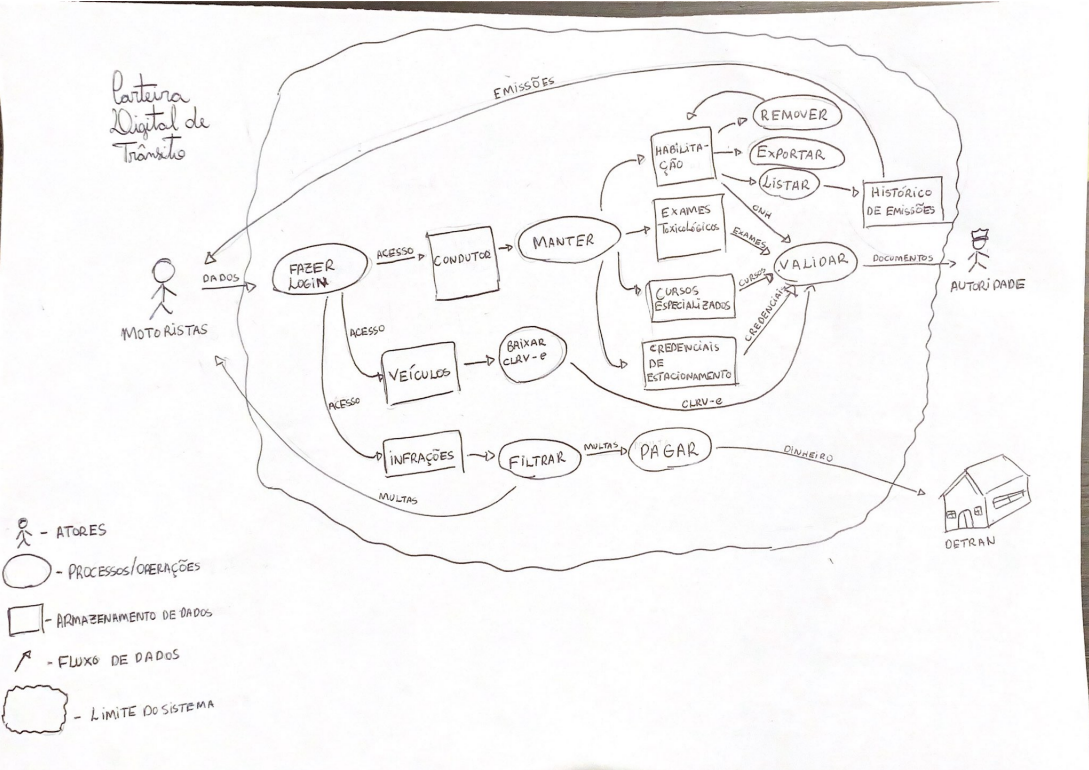 Carteira
Digital de
Trânsito
EMISSÕES
REMOVER
HABILITA-
ÇÃO
EXPORTAR
LISTAR
HISTÓRICO
DE EMISSÕES
CNH
EXAMES
TOXICOLÓGICOS
EXAMES
MANTER
ACESSO
CONDUTOR
FAZER
LOGIN
DADOS
MOTORISTAS
VALIDAR
DOCUMENTOS
AUTORIDADE
CURSOS
CURSOS
ESPECIALIZADOS
CREDENCIAIS
CREDENCIAIS
DE
ESTACIONAMENTO
ACESSO
VEÍCULOS
BAIXAR
CLRV-e
CLRV-e
ACESSO
INFRAÇÕES
FILTRAR
MULTAS
PAGAR
DINHEIRO
MULTAS
DETRAN
- ATORES
- PROCESSOS/OPERAÇÕES
- ARMAZENAMENTO DE DADOS
- FLUXO DE DADOS
- LIMITE DO SISTEMA